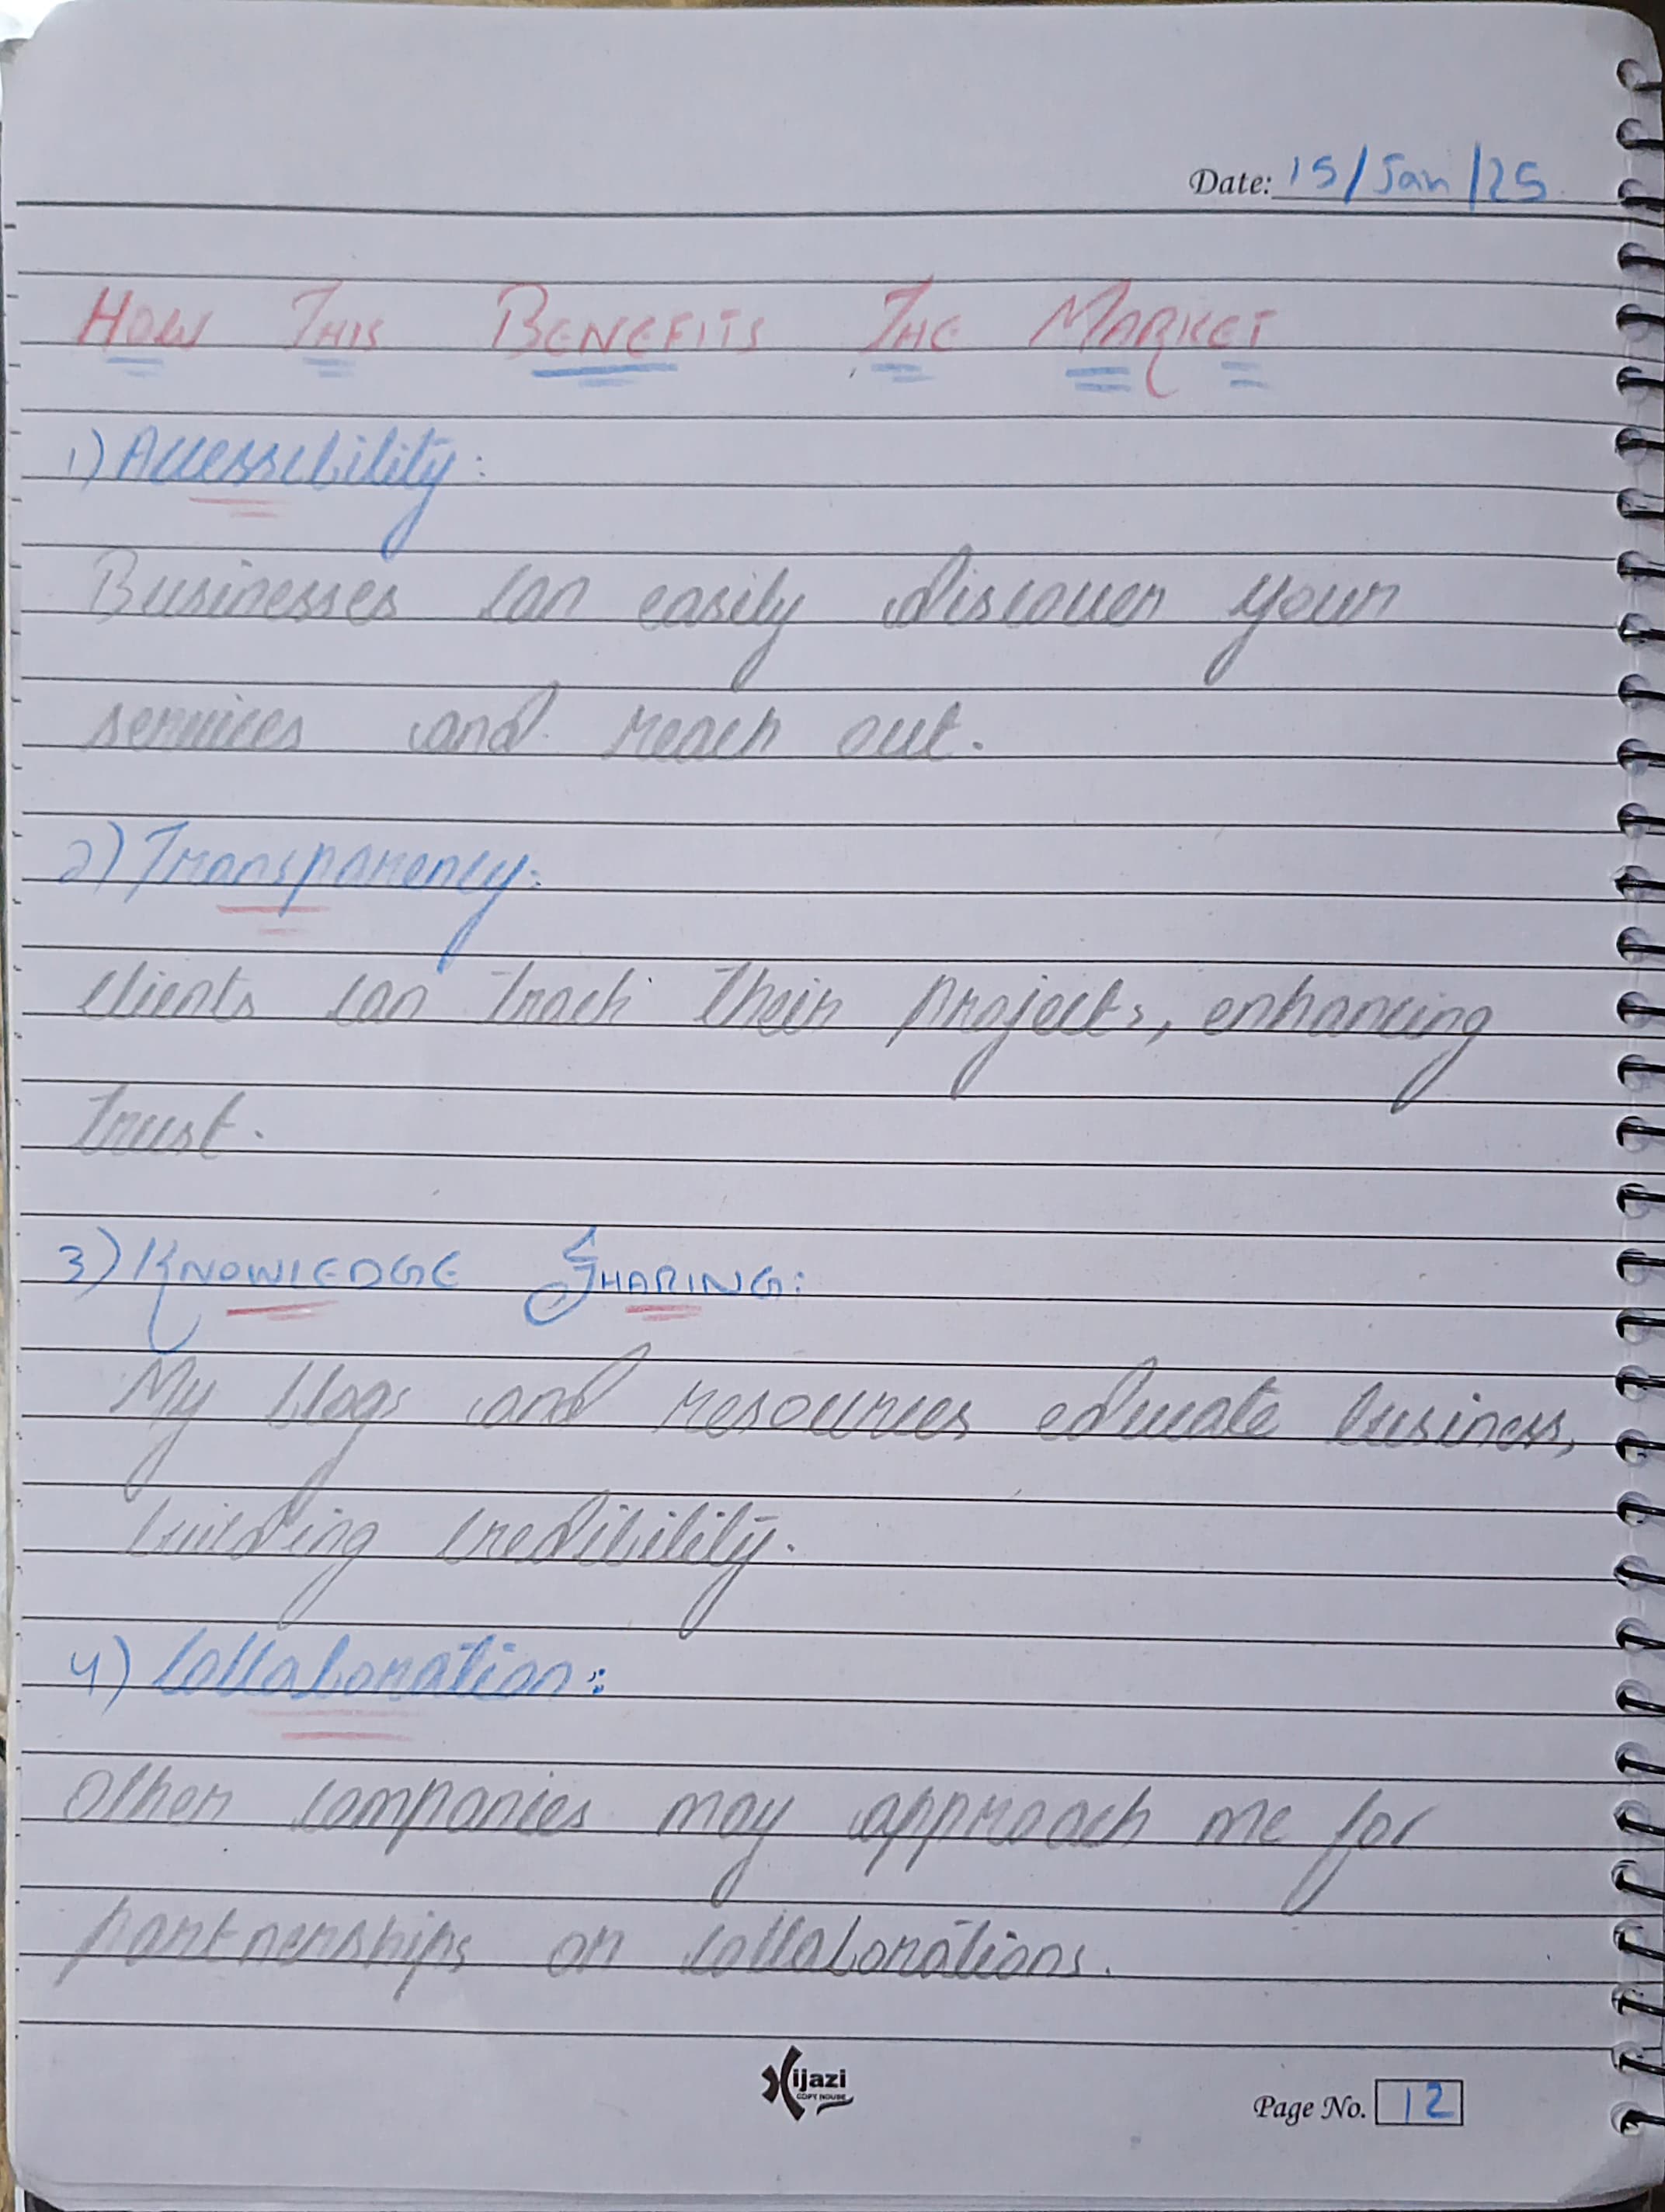 Date: 15/Jan/25
HOW THIS BENEFITS THE MARKET
1) Accessibility:
Businesses can easily discover your
services and reach out.
2) Transparency:
clients can track their projects, enhancing
trust.
3) KNOWLEDGE SHARING:
My blogs and resources educate business,
building credibility.
4) Collaboration:
Other companies may approach me for
partnerships or collaborations.
Hijazi
COPY HOUSE
Page No. 12